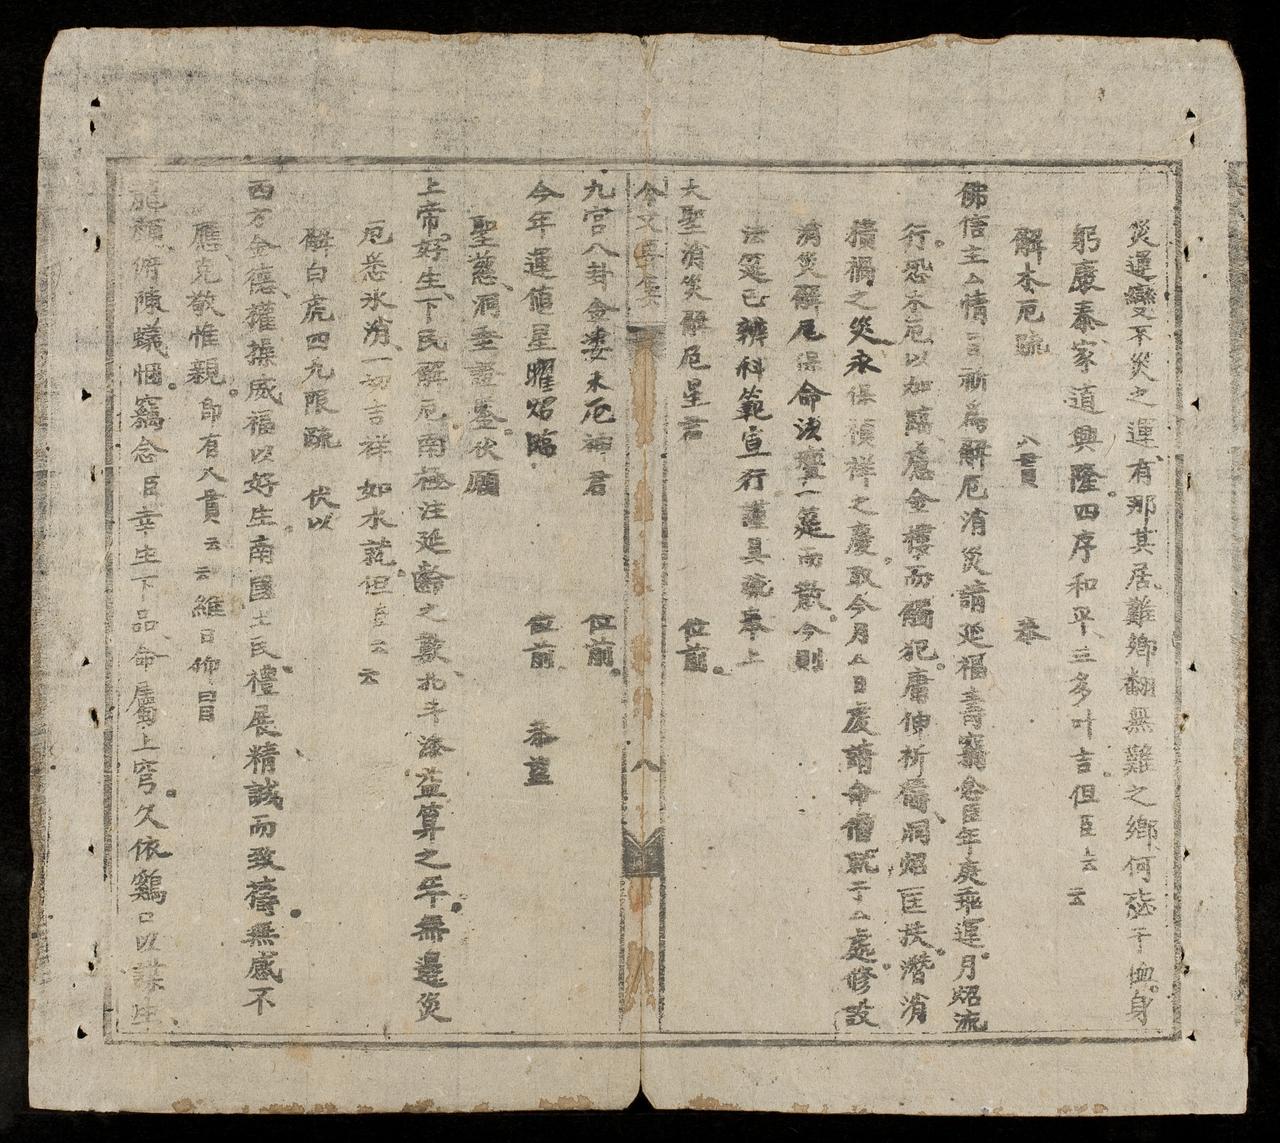 災運變不災之運有那其居難鄉翻無難之鄉何恙于血身
躬康泰家道興隆四序和平三多叶吉但臣厶云云
解木厄疏 八曹 恭
佛信主厶情旨祈為解厄消災請延福壽竊念臣年庚乖運月炤流
行恐木厄以加臨慮金樓而觸犯庸伸祈禱洞炤匡扶潛消
橫禍之災永保禎祥之慶取今月厶日虔請命僧就于厶處修設
消災解厄保命法壇一筵而散今則
法筵已辨科範宣行謹具疏奉上
大聖消災解厄星君 位前
八
九宮八卦金婁木厄神君 位前
今年運值星曜炤臨 位前 恭望
聖慈洞垂證鑒伏願
上帝好生下民解厄南極注延齡之數北斗添益算之年無邊災
厄悉氷消一切吉祥如水就但臣云云
解白虎四九限疏 伏以
西方金德權操威福以好生南國士民禮展精誠而致禱無感不
應克敬惟親即有入貫云云維日仰
龍顏俯陳蟻悃竊念臣幸生下品命屬上穹久依鷄口以謀生